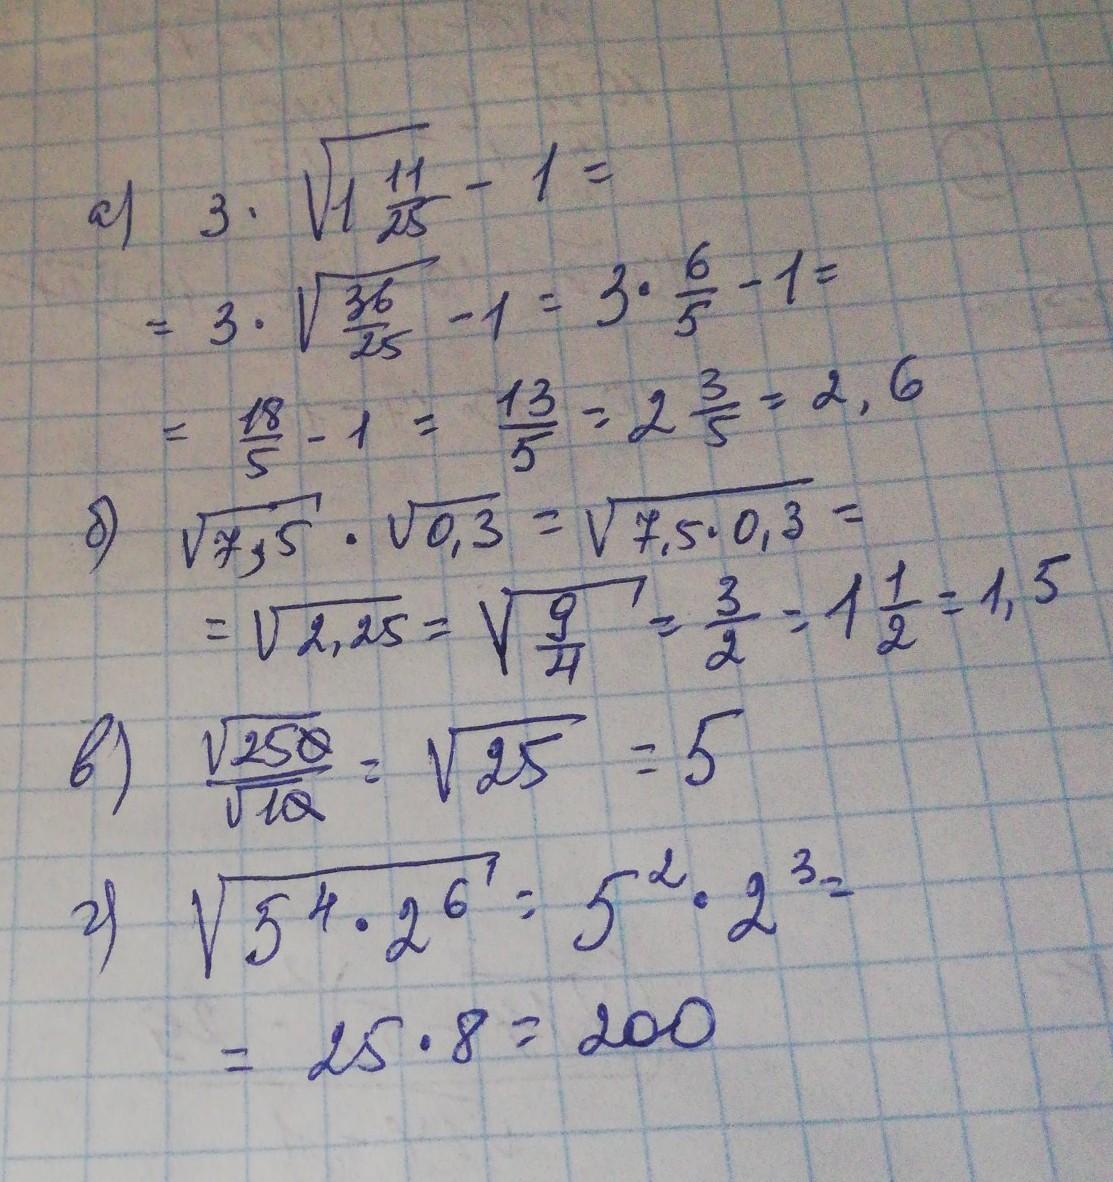 а) 3 · √1 11/25 - 1 =
= 3 · √36/25 - 1 = 3 · 6/5 - 1 =
= 18/5 - 1 = 13/5 = 2 3/5 = 2,6
б) √7,5 · √0,3 = √7,5·0,3 =
= √2,25 = √9/4 = 3/2 = 1 1/2 = 1,5
в) √250/√10 = √25 = 5
г) √5⁴ · 2⁶ = 5² · 2³ =
= 25 · 8 = 200